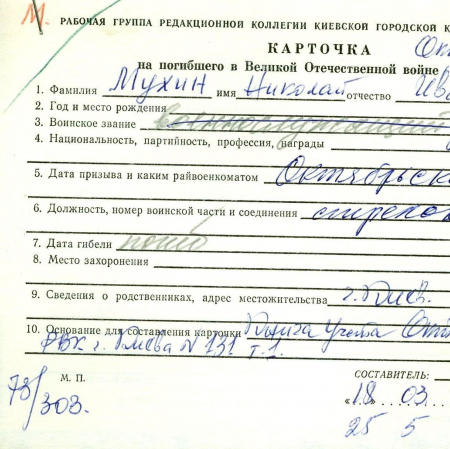 М. РАБОЧАЯ ГРУППА РЕДАКЦИОННОЙ КОЛЛЕГИИ КИЕВСКОЙ ГОРОДСКОЙ К
КАРТОЧКА Ок
на погибшего в Великой Отечественной войне
1. Фамилия Мухин имя Николай отчество Ива
2. Год и место рождения
3. Воинское звание военнослужащий
4. Национальность, партийность, профессия, награды
5. Дата призыва и каким райвоенкоматом Октябрьско
6. Должность, номер воинской части и соединения стрелко
7. Дата гибели погиб
8. Место захоронения
9. Сведения о родственниках, адрес местожительства г. Киев.
10. Основание для составления карточки Книга учета Окт
РВК г. Киева N 131 т. 1.
М. П. СОСТАВИТЕЛЬ:
73/303. «18 03
25 5